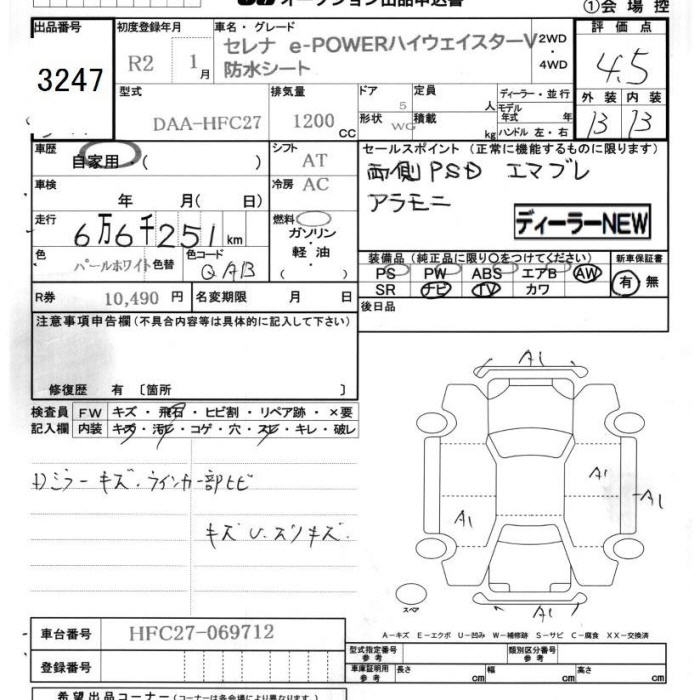 オークション出品申込書
①会場控
出品番号
3247
初度登録年月
R2 1月
車名・グレード
セレナ e-POWERハイウェイスターV
防水シート
2WD
・
4WD
評価点
4.5
外装 内装
B B
型式
DAA-HFC27
排気量
1200 CC
ドア 5
形状 WG
定員 人
積載 kg
ディーラー・並行
モデル年式 年
ハンドル 左・右
車歴
自家用・( )
シフト
AT
車検
年 月( 日)
冷房 AC
走行
6万6千251 km
燃料
ガソリン
・
軽油
・
( )
色
パールホワイト 色替
色コード
QAB
R券 10,490 円 名変期限 月 日
セールスポイント (正常に機能するものに限ります)
両側PSD エマブレ
アラモニ
ディーラーNEW
装備品 (純正品に限り○をつけてください)
PS PW ABS エアB AW
SR ナビ TV カワ
新車保証書
有 無
後日品
注意事項申告欄 (不具合内容等は具体的に記入して下さい)
修復歴 有 〔箇所 〕
検査員記入欄
FW キズ・飛石・ヒビ割・リペア跡・×要
内装 キズ・汚レ・コゲ・穴・スレ・キレ・破レ
Dミラーキズ・ウインカー部ヒビ
キズU・スリキズ
A1
A1
A1
A1
A1
スペア
A－キズ E－エクボ U－凹み W－補修跡 S－サビ C－腐食 XX－交換済
車台番号 HFC27-069712
登録番号
型式指定番号 参考
類別区分番号 参考
車庫証明用 参考 長さ cm 幅 cm 高さ cm
希望出品コーナー (コーナーは各会場により異なります)